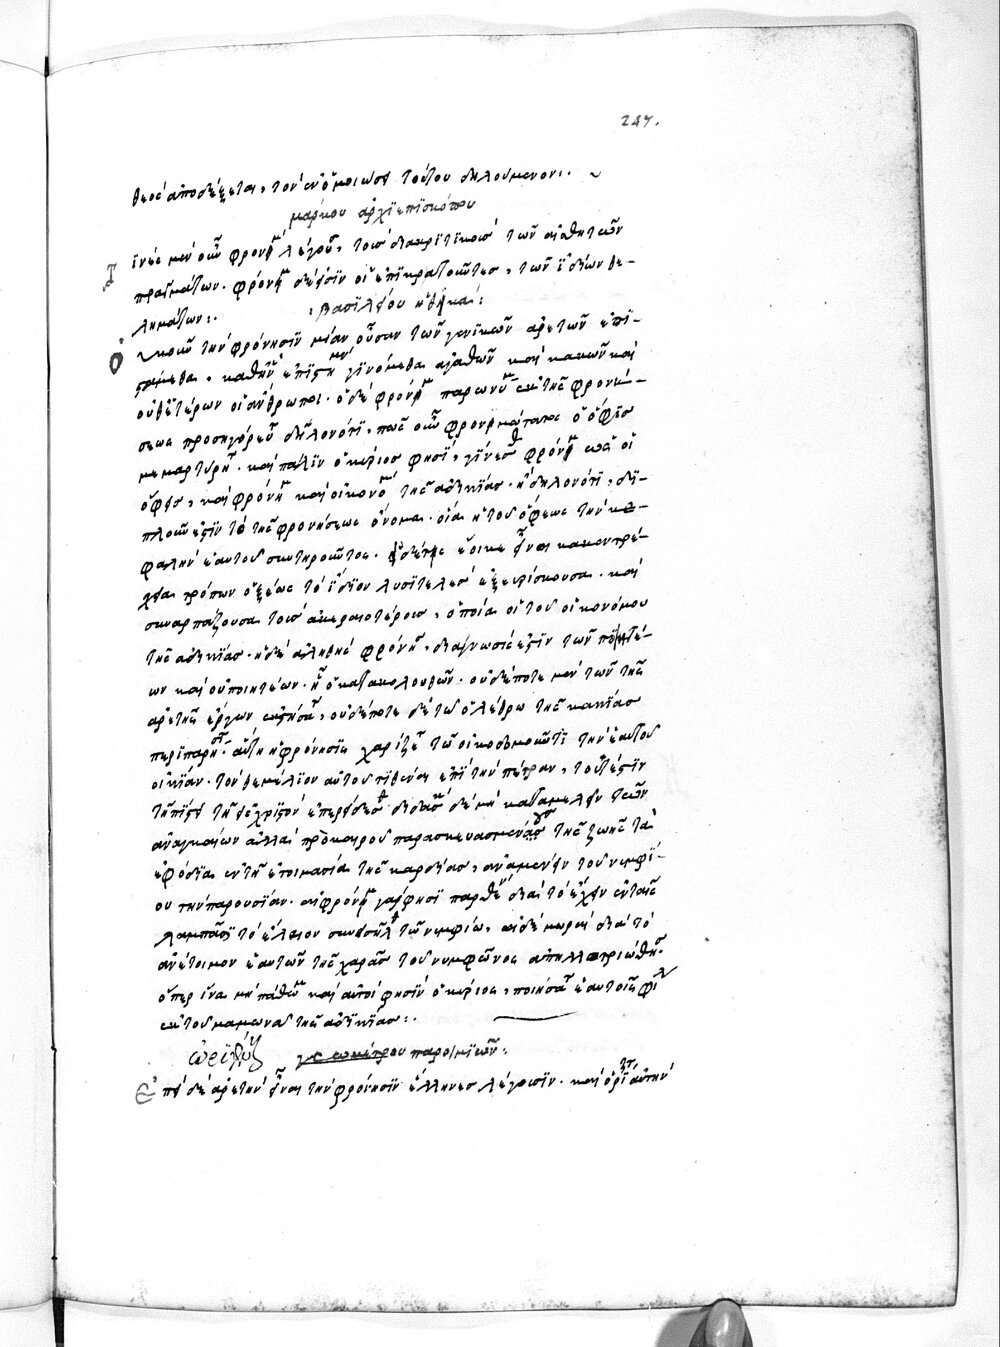 247.
θεὸς ἀποδέχεται, τὸν ἐν ὁμοιώσει τούτου δηλούμενον·
μάρκου ἀρχιεπισκόπου
Τινὲς μὲν οὖν φρονίμους λέγουσι, τοὺς διακριτικοὺς τῶν αἰσθητῶν
πραγμάτων. φρόνιμοι δέ εἰσϊν οἱ ἐπικρατοῦντες, τῶν ἰδίων θε-
λημάτων:.
Βασιλείου ἠθικά:
Οὐκοῦν τὴν φρόνησιν μίαν οὖσαν τῶν γενικῶν ἀρετῶν ἐπι-
καθ' ἣν ἐπιστήμονες γινόμεθα ἀγαθῶν καὶ κακῶν καὶ
οὐθετέρων οἱ ἄνθρωποι. ὁ δὲ φρόνιμος παρωνύμως ἐκ τῆς φρονή-
σεως προσηγόρευται δηλονότι, πῶς οὖν φρονιμώτατος ὁ ὄφις
μεμαρτύρηται. καὶ πάλιν ὁ κύριος φησί, γίνεσθε φρόνιμοι ὡς οἱ
ὄφεις, καὶ φρόνιμος καὶ οἰκονόμος τῆς ἀδικίας. ἢ δηλονότι, δι-
πλοῦν ἐστιν τὸ τῆς φρονήσεως ὄνομα. οἵα ἡ τοῦ ὄφεως τὴν κε-
φαλὴν ἑαυτοῦ συντηροῦντος. ἔοικε εἶναι κακεντρέ-
χεια τρόπων ὀξέως τὸ ἴδιον λυσιτελὲς ἐξευρίσκουσα. καὶ
συναρπάζουσα τοὺς ἀκεραιοτέρους, ὁποία ἡ τοῦ οἰκονόμου
τῆς ἀδικίας. ἡ δὲ ἀληθὴς φρόνησις, διάγνωσίς ἐστιν τῶν ποιητέ-
ων καὶ οὐ ποιητέων. ᾗ ὁ κατακολουθῶν. οὐδέποτε μὲν τῶν τῆς
ἀρετῆς ἔργων, οὐδέποτε δὲ τῷ ὀλέθρῳ τῆς κακίας
περιπαρήσεται. αὕτη ἡ φρόνησις χαρίζεται τῷ οἰκοδομοῦντι τὴν ἑαυτοῦ
οἰκίαν. τὸν θεμέλιον αὐτοῦ τιθέναι ἐπὶ τὴν πέτραν, τουτέστιν
τῇ πίστει τῇ εἰς χριστὸν ἐπερείδεσθαι διδάσκει δὲ μὴ καταμελεῖν τῶν
ἀναγκαίων ἀλλὰ πρὸ καιροῦ παρασκευασμένους τῆς ζωῆς τὰ
ἐφόδια ἐν τῇ ἑτοιμασίᾳ τῆς καρδίας, ἀναμένειν τοῦ νυμφί-
ου τὴν παρουσίαν. αἱ φρόνιμοι γάρ φησι παρθένοι διὰ τὸ ἔχειν ἐν ταῖς
λαμπάσι τὸ ἔλαιον συνεισῆλθον τῷ νυμφίῳ, αἱ δὲ μωραὶ διὰ τὸ
ἀνέτοιμον ἑαυτῶν τῆς χαρᾶς τοῦ νυμφῶνος ἀπηλλοτριώθησαν.
ὅπερ ἵνα μὴ πάθωμεν καὶ αὐτοί φησιν ὁ κύριος, ποιήσατε ἑαυτοῖς φίλους
ἐκ τοῦ μαμωνᾶ τῆς ἀδικίας:.
ὠριγένους παροιμιῶν:
Ἐπεὶ δὲ ἀρετὴν εἶναι τὴν φρόνησιν ἕλληνες λέγουσιν. καὶ ὁρίζονται αὐτὴν